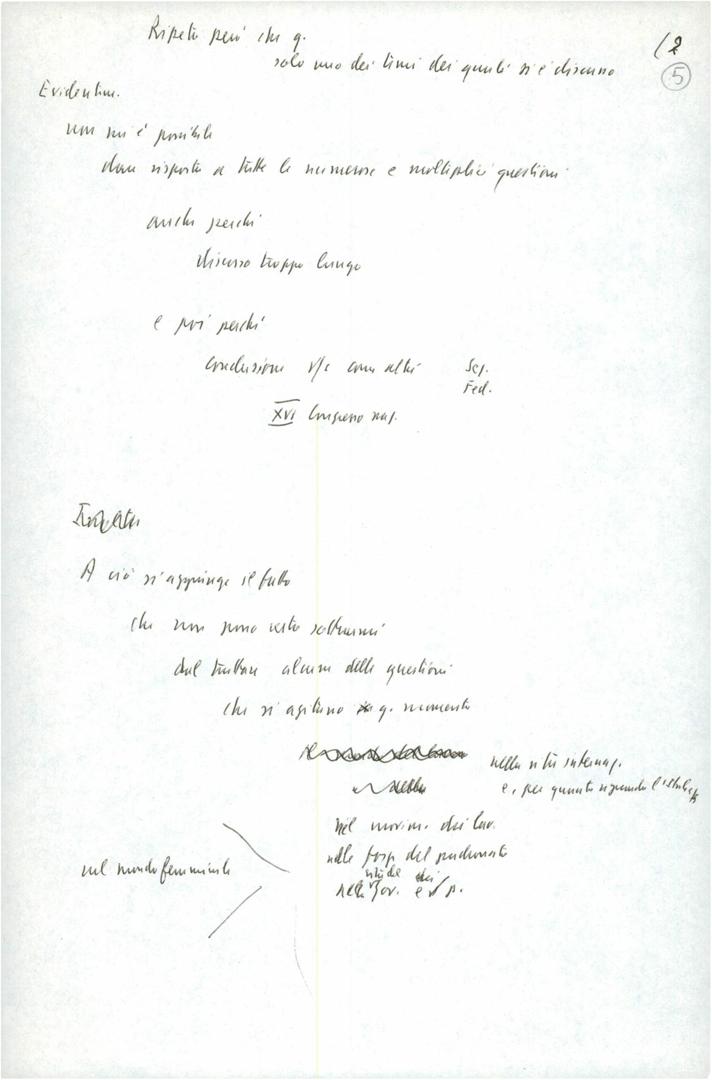 Ripeto però che q.
(2
5
solo uno dei temi dei quali si è discusso
Evidentem.
non mi è possibile
dare risposta a tutte le numerose e molteplici questioni
anche perché
discorso troppo lungo
e poi perché
conclusione v/c come altri Seg.
Fed.
XVI Congresso naz.
A ciò si aggiunge il fatto
che non posso certo sottrarmi
dal trattare alcune delle questioni
che si agitano in q. momento
nella vita internaz.
nella e, per quanto riguarda l'Italia
nel movim. dei lav.
nelle forze del padronato
nel mondo femminile
vita dei
nella Gov. e P.